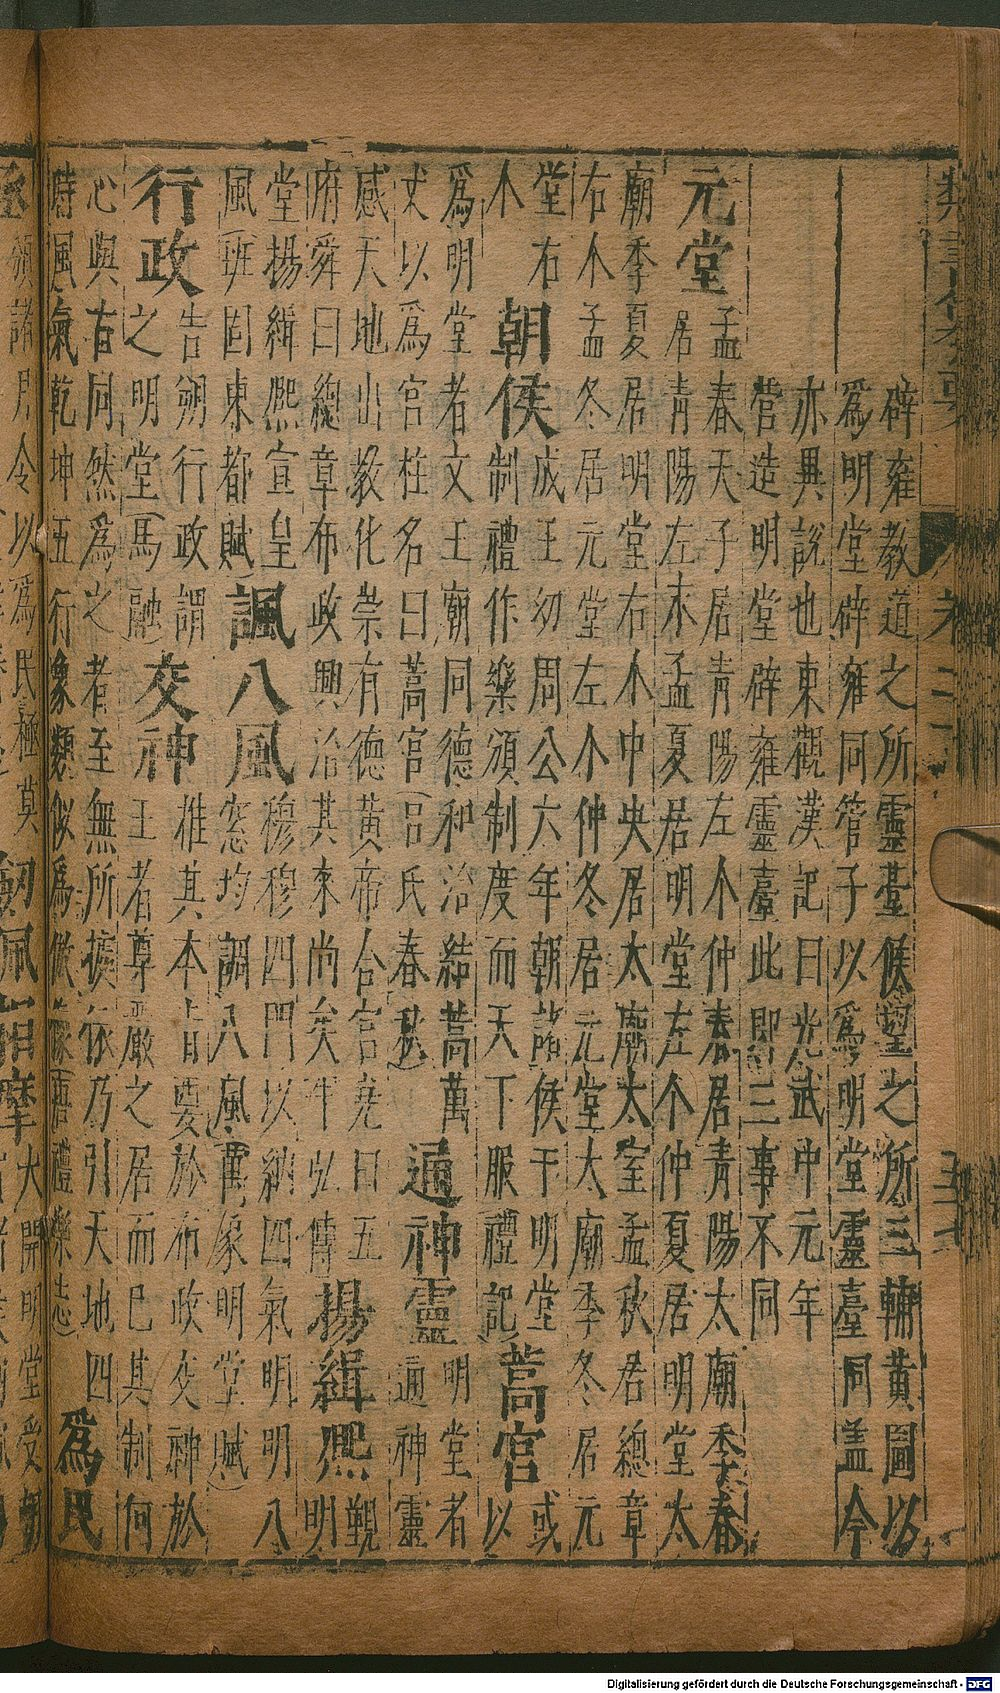 辟雍教道之所靈臺候望之所三輔黃圖以
為明堂辟雍同管子以為明堂靈臺同蓋今
亦異說也東觀漢記曰光武中元年
營造明堂辟雍靈臺此即三事不同
元堂
孟春天子居青陽左个仲春居青陽太廟季春
居青陽左木孟夏居明堂左个仲夏居明堂太
廟季夏居明堂右个中央居太廟太室孟秋居總章
右个孟冬居元堂左个仲冬居元堂太廟季冬居元
堂右
个
朝侯
成王幼周公六年朝諸侯于明堂
制禮作樂頒制度而天下服禮記)
蒿宮
或
以
為明堂者文王廟同德和洽結蒿萬
丈以為宮柱名曰蒿宮(呂氏春秋)
通神靈
明堂者
通神靈
感天地出教化崇有德黃帝合宮堯曰五
府舜曰總章布政興治其來尚矣牛弘傳
揚緝熙
覲
明
堂揚緝熙宣皇
風(班固東都賦)
諷八風
穆穆四門以納四氣明明八
窓均調八風(萬象明堂賦)
行政
告朔行政謂
之明堂(馬融)
交神
推其本旨要於布政交神於
王者尊嚴之居而已其制何
心與古同然為之者至無所據依乃引天地四
時風氣乾坤五行象類似為倣像(唐禮樂志)
為民
極
頒諸月令以為民極莫
劍佩相摩
大開明堂受朝
Digitalisierung gefördert durch die Deutsche Forschungsgemeinschaft - DFG